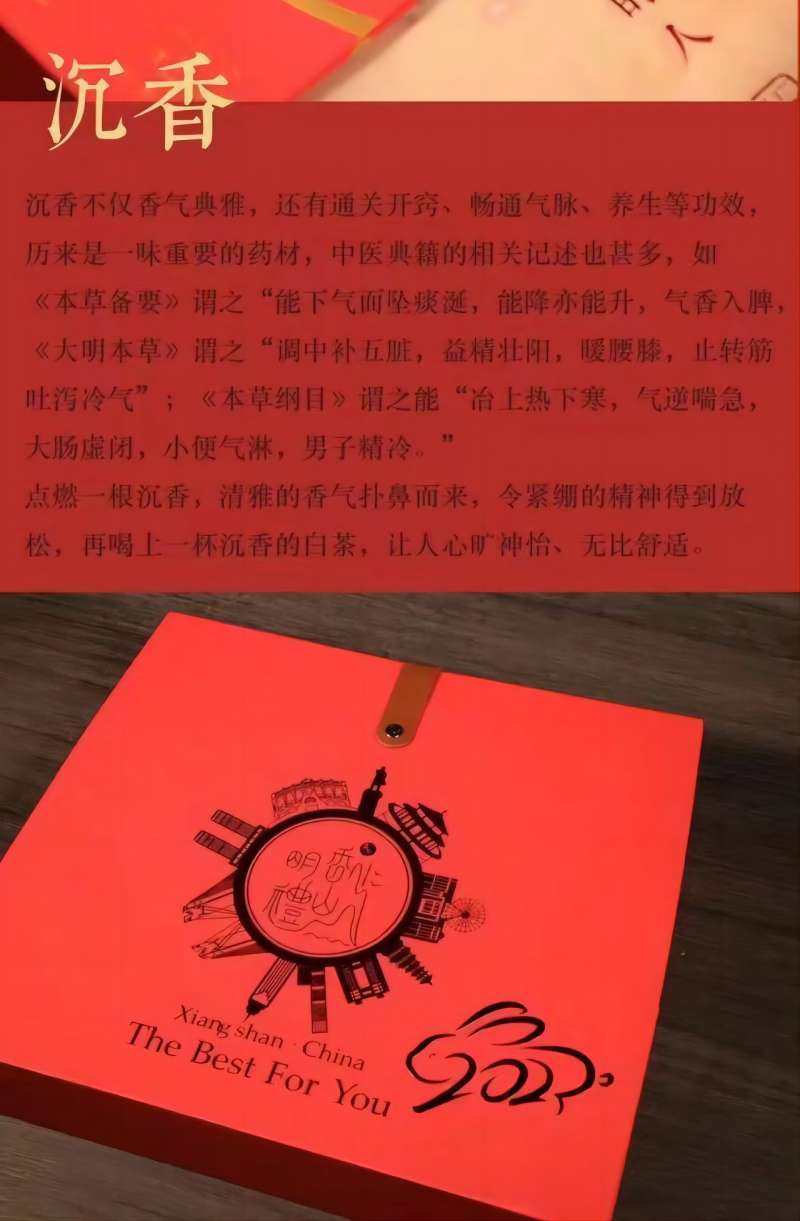 人
沉香
沉香不仅香气典雅，还有通关开窍、畅通气脉、养生等功效，
历来是一味重要的药材，中医典籍的相关记述也甚多，如
《本草备要》谓之“能下气而坠痰涎，能降亦能升，气香入脾，
《大明本草》谓之“调中补五脏，益精壮阳，暖腰膝，止转筋
吐泻冷气”；《本草纲目》谓之能“冶上热下寒，气逆喘急，
大肠虚闭，小便气淋，男子精冷。”
点燃一根沉香，清雅的香气扑鼻而来，令紧绷的精神得到放
松，再喝上一杯沉香的白茶，让人心旷神怡、无比舒适。
明香
禮山
Xiang shan · China
The Best For You
2023